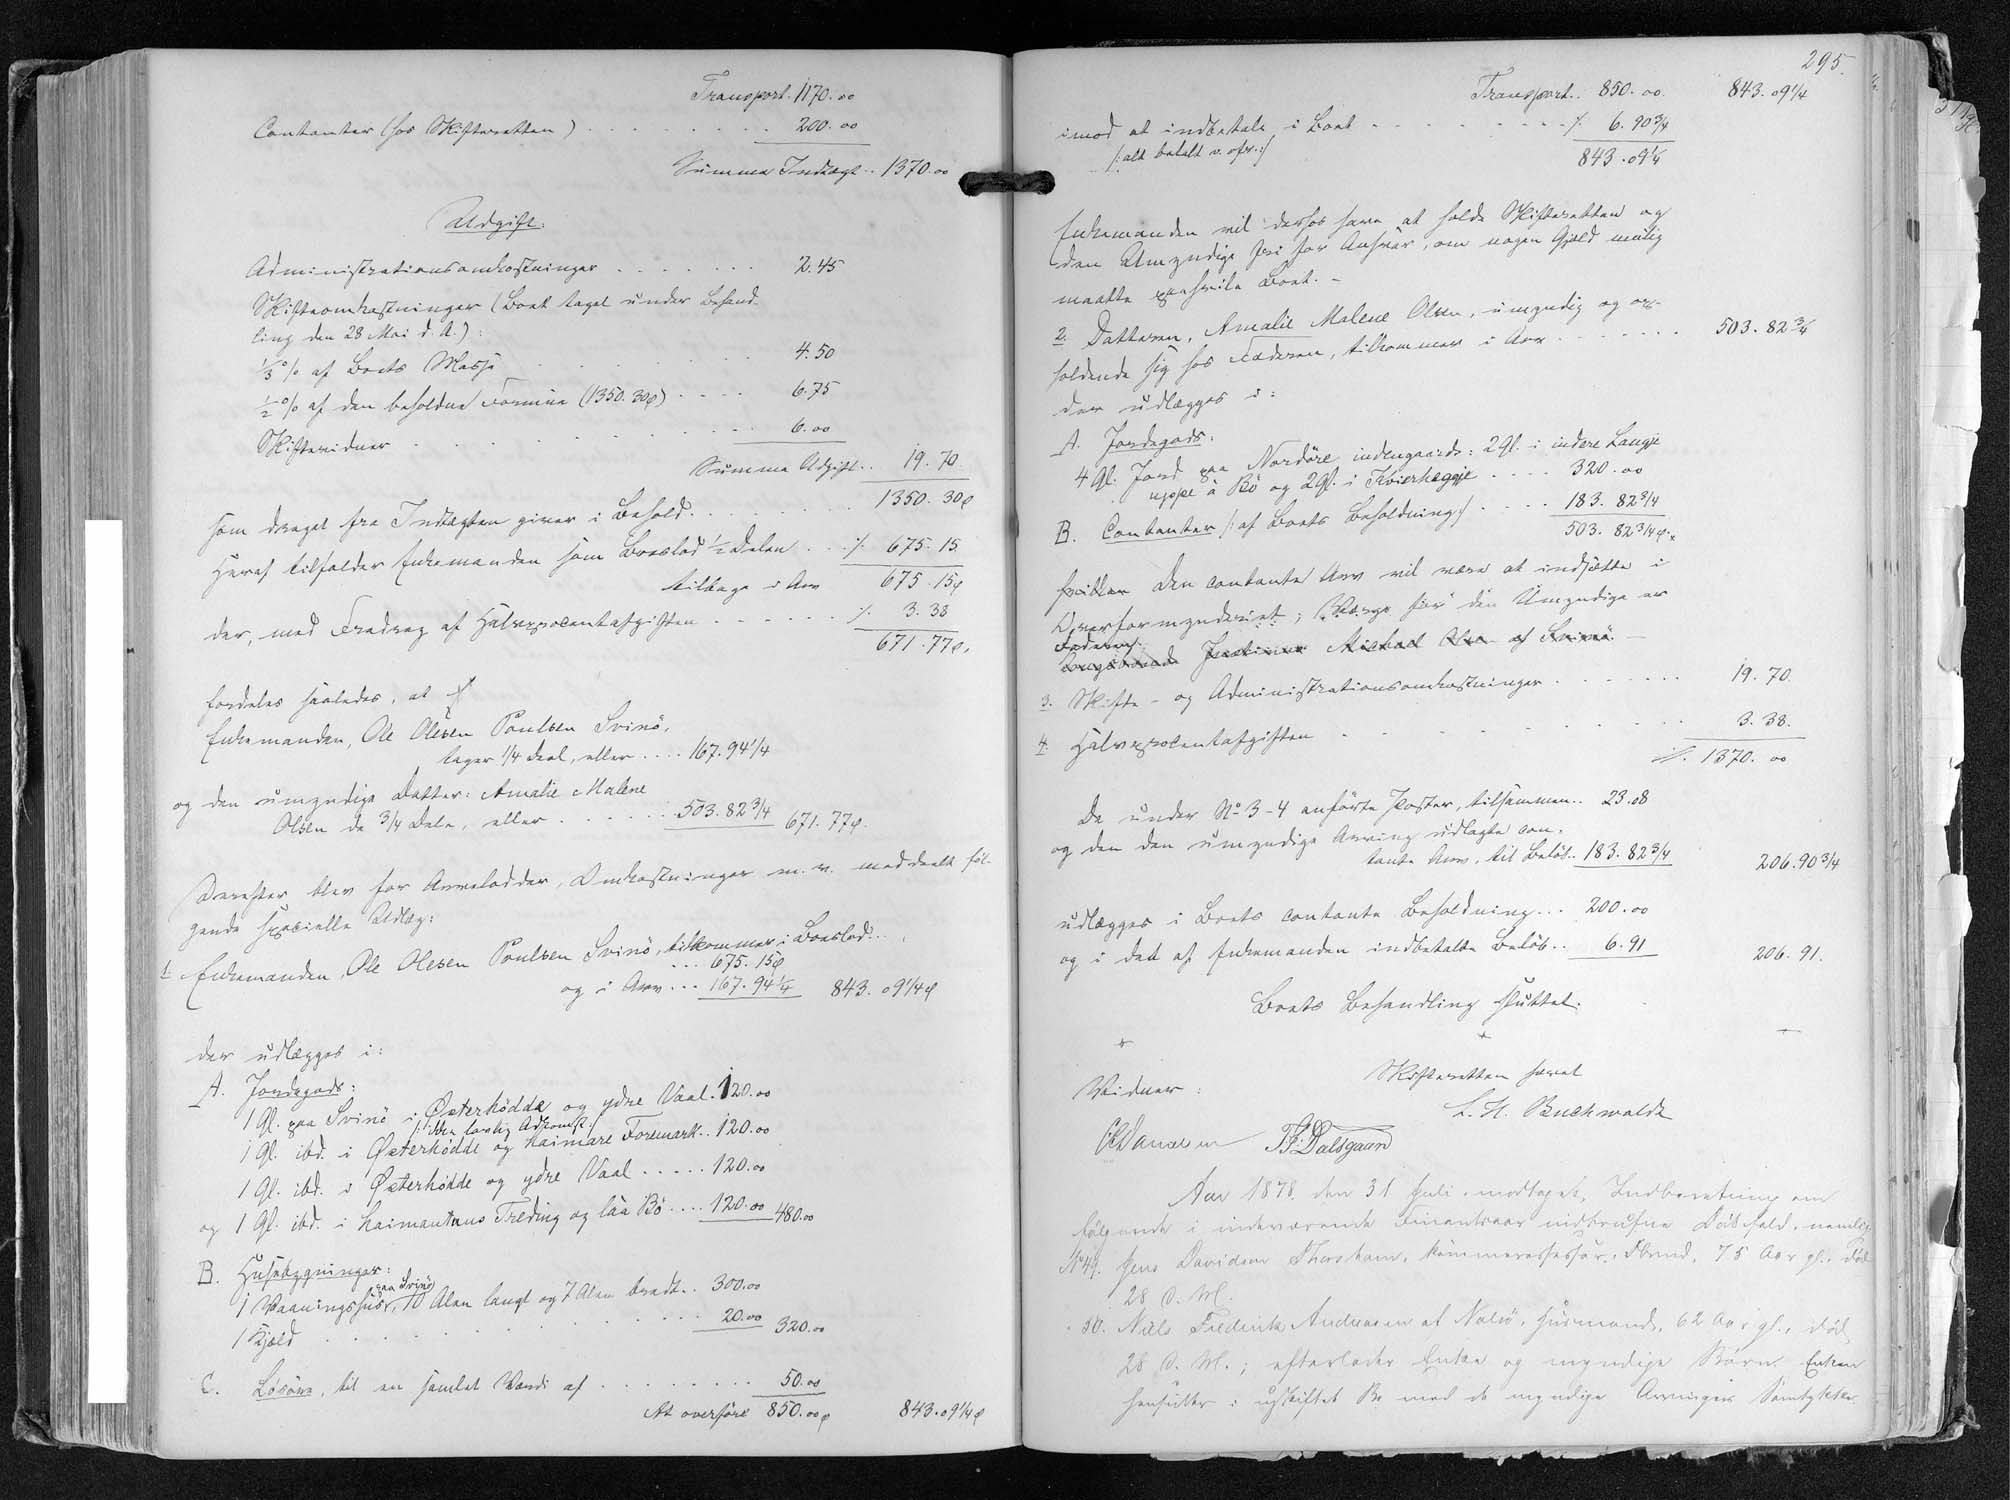 Transport. 1170. 00
Contanter (hos Skifteretten) . . . . . . . . 200. 00
Summa Indtægt . . 1370. 00
Udgift:
Administrationsomkostninger . . . . . . . 2. 45
Skifteomkostninger (Boet taget under Behand-
ling den 28 Mai d. A.) :
1/3 % af Boets Masse . . . . . . . 4. 50
1/2 % af den beholdne Formue (1350. 30ø) . . . . 6. 75
Skiftevidner . . . . . . . . . 6. 00
Summa Udgift . . 19. 70
som draget fra Indtægten giver i Behold . . . . . . . . 1350. 30ø
Heraf tilfalder Enkemanden som Boeslod 1/2 Delen . . . ./. 675. 15
tilbage i Arv 675. 15ø
der, med Fradrag af Halvprocentafgiften . . . . . . ./. 3. 38
671. 77ø.
fordeles saaledes, at
Enkemanden, Ole Olesen Poulsen Svinö,
tager 1/4 Deel, eller . . . . 167. 94 1/4
og den umyndige Datter: Amalie Malene
Olsen de 3/4 Dele, eller . . . . . . 503. 82 3/4 671. 77ø.
Derefter blev for Arvelodder, Omkostninger m. v. meddeelt föl-
gende specielle Udlæg:
1. Enkemanden, Ole Olesen Poulsen Svinö, tilkommer i Boeslod . . .
. . . 675. 15ø
og i Arv . . . 167. 94 1/4 843. 09 1/4 ø
der udlægges i:
A. Jordegods:
1 Gl. paa Svinö i Østerhödde og ydre Vaal. 120. 00
/: ikke lovlig Adkomst :/
1 Gl. ibd. i Østerhödde og haimare Foremark. . 120. 00
1 Gl. ibd. i Østerhödde og ydre Vaal . . . . . 120. 00
og 1 Gl. ibd. i haimantuns Treding og láa Bö . . . . 120. 00 480. 00
B. Husebygninger:
paa Svinö
1 Vaaningshus, 10 Alen langt og 7 Alen bredt . . 300. 00
1 Hjeld . . . . . . . . . . 20. 00 320. 00
C. Lösöre, til en samlet Værdi af . . . . . . . . 50. 00
At overföre 850. 00ø 843. 09 1/4 ø
295.
Transport . . 850. 00. 843. 09 1/4
imod at indbetale i Boet . . . . . . . . ./. 6. 90 3/4
/: alt betalt v. ofr. :/ 843. 09 1/4
Enkemanden vil derhos have at holde Skifteretten og
den Umyndige fri for Ansvar, om nogen Gjæld mulig
maatte paahvile Boet. -
2. Datteren, Amalie Malene Olsen, umyndig og op-
holdende sig hos Faderen, tilkommer i Arv . . . . . . . 503. 82 3/4
der udlægges i:
A. Jordegods.
4 Gl. Jord paa Nordöre indengaards: 2 Gl. i indere Laugje
uppe á Bö og 2 Gl. i Kvierheggje . . . . 320. 00
B. Contanter /: af Boets Beholdning :/ . . . . 183. 82 3/4
503. 82 3/4 ø.
Den contante Arv vil være at indsætte i
Overformynderiet; Værge for den Umyndige er
Faderen.
Michael Olsen af Svinö.
3. Skifte- og Administrationsomkostninger . . . . . . . 19. 70.
4. Halvprocentafgiften . . . . . . . . . 3. 38.
1370. 00
De under No 3-4 anförte Poster, tilsammen . . 23. 08
og den den umyndige Arving udlagte con-
tante Arv, til Belöb . . 183. 82 3/4 206. 90 3/4
udlægges i Boets contante Beholdning . . . 200. 00
og i det af Enkemanden indbetalte Belöb . . 6. 91 206. 91.
Boets Behandling sluttet.
Skifteretten hævet
Vidner:
L. H. Buchwaldt
Dalsgaard
Aar 1878. den 31 Juli modtaget Indberetning om
fölgende i indeværende Finantsaar indtrufne Dödsfald, nemlig
No 49. Jens Davidsen Thorshavn, 75 Aar gl., död
28 d. M.
50. Niels Frederik Andreasen af Nolsö, Huusmand, 62 Aar gl., död
28 d. M.; efterlader Enke og myndige Börn. Enken
hensidder i uskiftet Bo med de myndige Arvingers Samtykke.